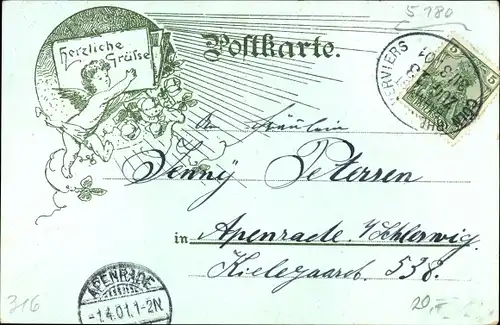 5 180
Herzliche
Grüsse
Postkarte.
VERVIERS
5
An Fräulein
Jenny Petersen
in Apenrade i/Schleswig
Kielegaard 538.
APENRADE
-1.4.01.1-2N
316
20,-